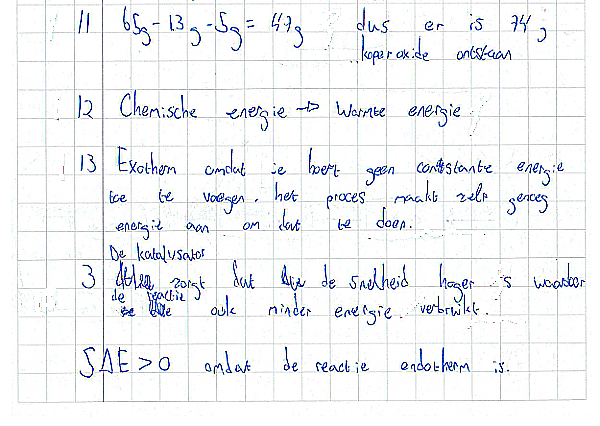 11 65g - 13g - 5g = 47g dus er is 74g
koperoxide ontstaan
12 Chemische energie → Warmte energie
13 Exotherm omdat je hoeft geen constante energie
toe te voegen. het proces maakt zelf genoeg
energie aan om dat te doen.
De katalysator
3 zorgt dat de snelheid hoger is waardoor
de reactie ook minder energie verbruikt.
5 ΔE > 0 omdat de reactie endotherm is.